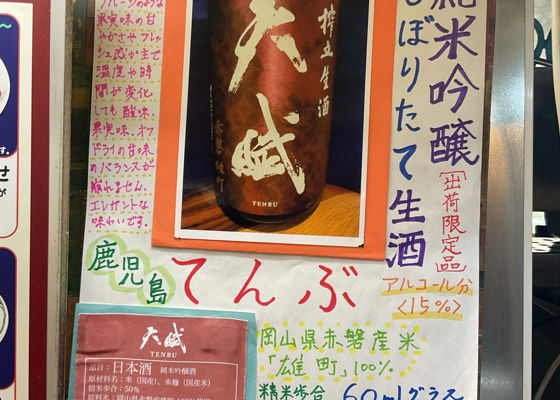 フルーツのような
果実味の甘
やかさやフレッ
シュ感が主で
温度や時
間が変化
しても酸味、
果実味、オフ
ドライの甘味
のバランスが
崩れません。
エレガントな
味わいです。
天賦
搾立生酒
赤磐雄町
TENBU
純米吟醸
しぼりたて生酒
[出荷限定品]
アルコール分
<15%>
鹿児島
てんぶ
天賦
TENBU
品目:日本酒 純米吟醸酒
原材料名:米(国産)、米麹(国産米)
精米歩合:50%
岡山県赤磐産米
「雄町」100%
精米歩合
60mlグラス